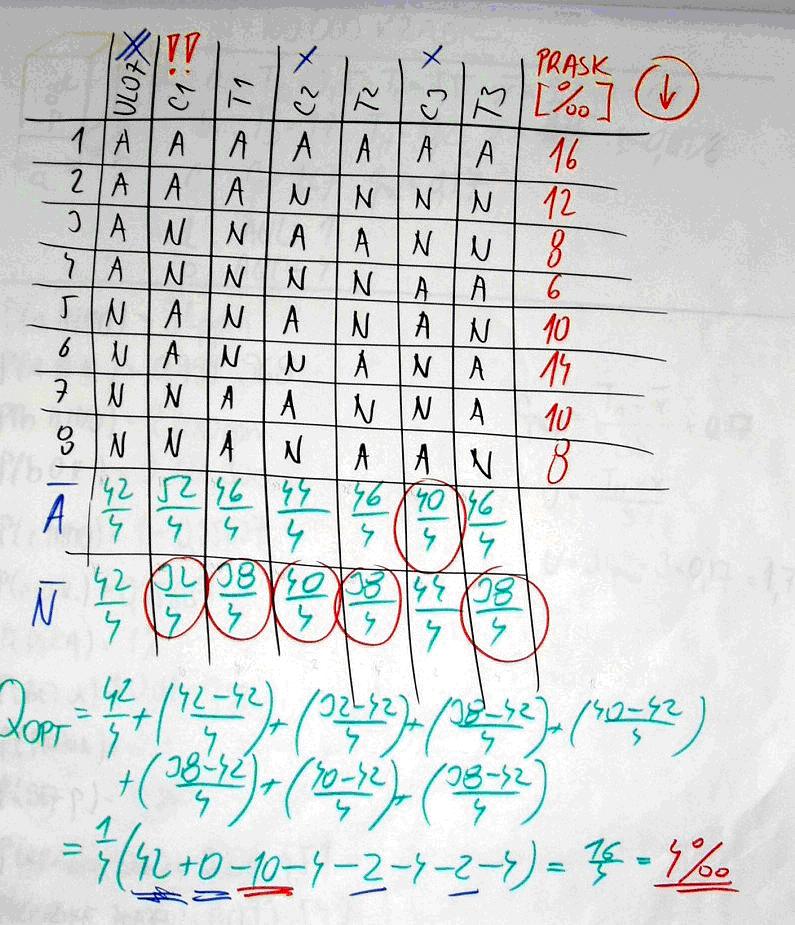 VLOŽ C1 T1 C2 T2 C3 T3 PRASK [‰] ↓
!! x x x
1 A A A A A A A 16
2 A A A N N N N 12
3 A N N A A N N 8
4 A N N N N A A 6
5 N A N A N A N 10
6 N A N N A N A 14
7 N N A A N N A 10
8 N N A N A A N 8
A̅ 42/4 52/4 46/4 44/4 46/4 40/4 46/4
N̅ 42/4 32/4 38/4 40/4 38/4 44/4 38/4
QOPT = 42/4 + (42-42/4) + (32-42/4) + (38-42/4) + (40-42/4)
+ (38-42/4) + (40-42/4) + (38-42/4)
= 1/4 (42 + 0 - 10 - 4 - 2 - 4 - 2 - 4) = 16/4 = 4‰